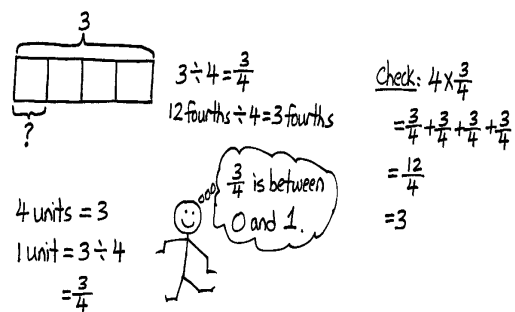 3
?
3÷4=3/4
12 fourths÷4=3 fourths
4 units=3
1 unit=3÷4
=3/4
3/4 is between
0 and 1.
Check: 4×3/4
=3/4+3/4+3/4+3/4
=12/4
=3